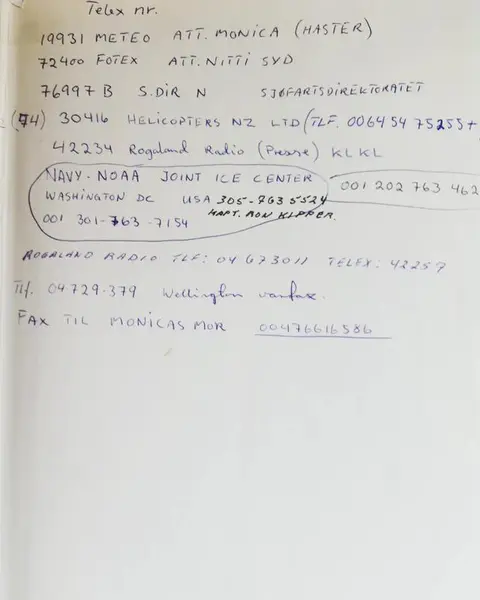 Telex nr.
19931 METEO ATT. MONICA (HASTER)
72400 FOTEX ATT. NITTI SYD
76997 B S.DIR N SJØFARTSDIREKTORATET
(74) 30416 HELICOPTERS NZ LTD (TLF. 0064 54 75255+
42234 Rogaland Radio (Presse) KLKL
NAVY-NOAA JOINT ICE CENTER
WASHINGTON DC USA 305-763 5524
001 202 763 462
001 301-763-7154 KAPT. RON KLPPER.
ROGALAND RADIO TLF: 04 673011 TELEX: 42257
Tlf. 04729.379 Wellington
FAX TIL MONICAS MOR 00476616586